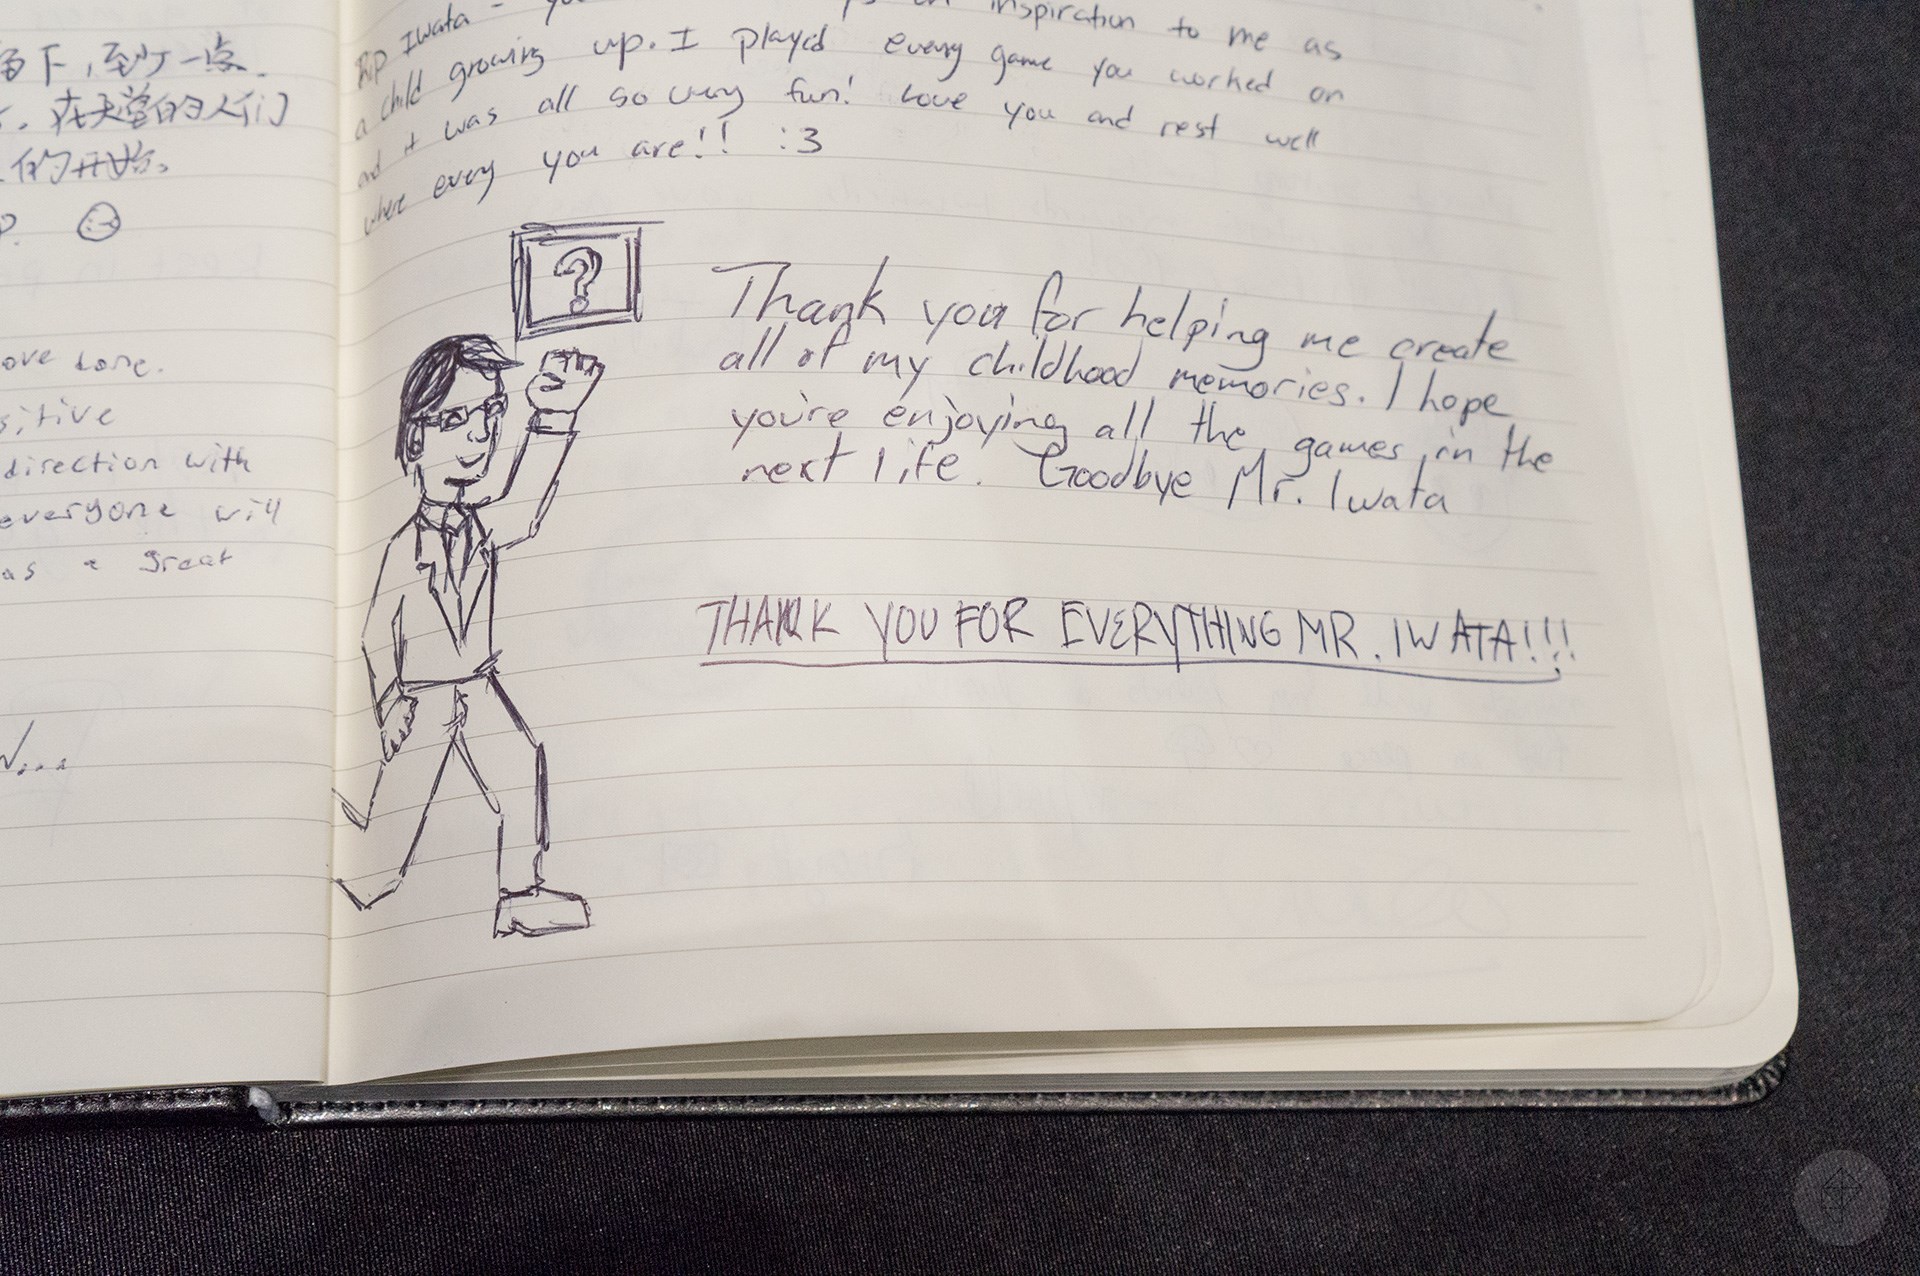 下,到了一点
在天堂的人们
的开始。
P.
ove Lore.
sitive
direction with
everyone will
as a great
RIP Iwata - inspiration to me as
a child growing up. I played every game you worked on
and it was all so very fun! Love you and rest well
where every you are!! :3
?
Thank you for helping me create
all of my childhood memories. I hope
you're enjoying all the games in the
next life. Goodbye Mr. Iwata
THANK YOU FOR EVERYTHING MR. IWATA!!!